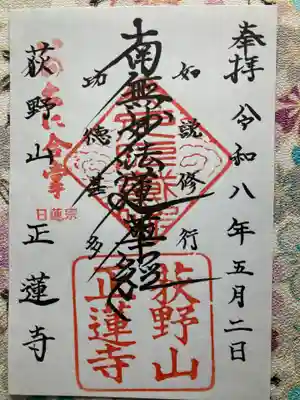 奉拝 令和八年五月二日
如説修行
南無妙法蓮華経
功徳甚多
日蓮宗
荻野山 正蓮寺
荻野山
正蓮寺